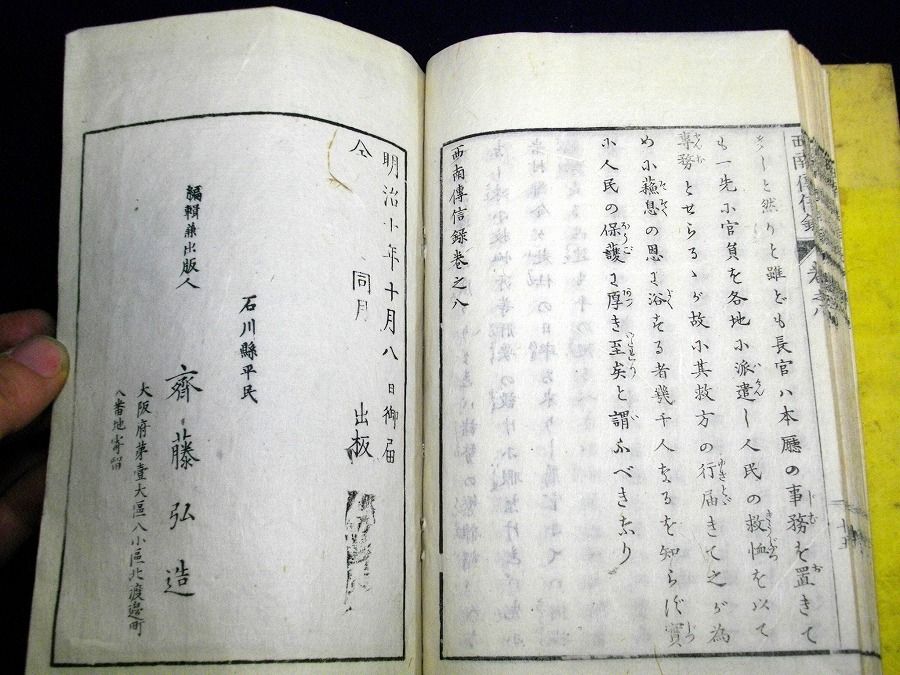 西南傳信録 巻之八
しと然りと雖ども長官ハ本廳の事務を置きて
も一先小官員を各地小派遣し人民の救恤を以て
事務とせらるゝが故小其救方の行届きて之が為
め小蘓息の恩に浴する者幾千人なるを知らず實
小人民の保護に厚き至矣と謂ふべきなり
西南傳信録巻之八
明治十年十月八日御届
仝 同月 出板
石川縣平民
編輯兼出版人 齊藤弘造
大阪府第壹大區八小區北渡邊町
八番地寄留